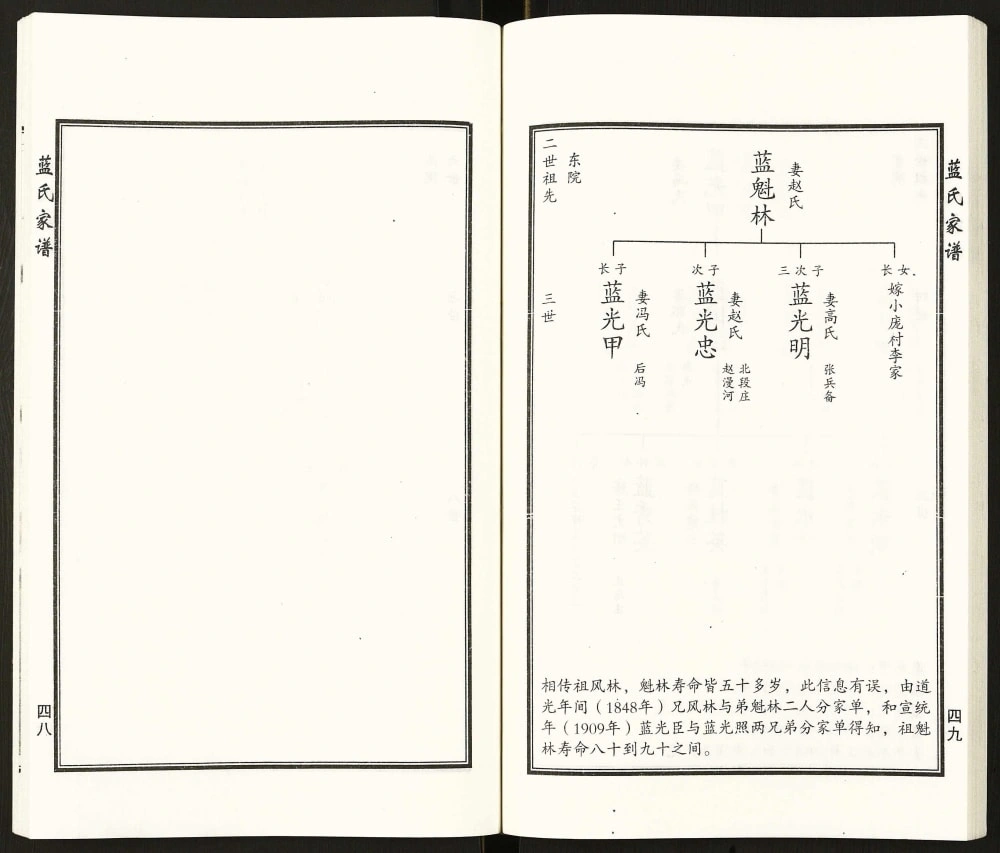 蓝氏家谱
四八
蓝氏家谱
四九
二世祖先
东院
蓝魁林
妻赵氏
三世
长子
蓝光甲
妻冯氏
后冯
次子
蓝光忠
妻赵氏
赵漫河
北段庄
三次子
蓝光明
妻高氏
张兵备
长女
嫁小庞村李家
相传祖风林，魁林寿命皆五十多岁，此信息有误，由道
光年间（1848年）兄风林与弟魁林二人分家单，和宣统
年（1909年）蓝光臣与蓝光照两兄弟分家单得知，祖魁
林寿命八十到九十之间。